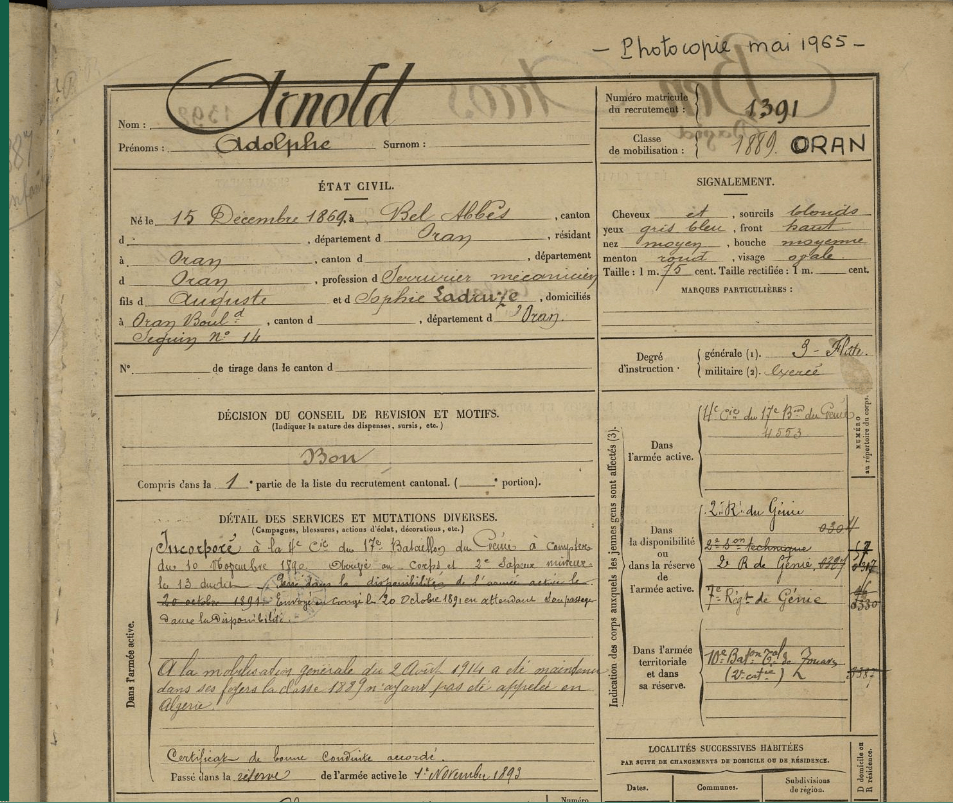 - Photocopie mai 1965 -
Nom : Arnold
Prénoms : Adolphe Surnom :
Numéro matricule du recrutement : 1391
Classe de mobilisation : 1889. ORAN
ÉTAT CIVIL.
Né le 15 Décembre 1869, à Bel Abbès, canton
d , département d Oran, résidant
à Oran, canton d , département
d Oran, profession d Serrurier mécanicien
fils d Auguste et d Sophie, domiciliés
à Oran Boul.d, canton d , département d'Oran.
Seguin n° 14
N° de tirage dans le canton d
SIGNALEMENT.
Cheveux et , sourcils blonds
yeux gris bleu, front haut
nez moyen, bouche moyenne
menton rond, visage ovale.
Taille : 1 m. 75 cent. Taille rectifiée : 1 m. cent.
MARQUES PARTICULIÈRES :
Degré d'instruction générale (1). 3
militaire (2). Exercé
DÉCISION DU CONSEIL DE REVISION ET MOTIFS.
(Indiquer la nature des dispenses, sursis, etc.)
Bon
Compris dans la 1e partie de la liste du recrutement cantonal. ( e portion).
DÉTAIL DES SERVICES ET MUTATIONS DIVERSES.
(Campagnes, blessures, actions d'éclat, décorations, etc.)
Dans l'armée active.
Incorporé à la 4e Cie du 17e Bataillon du Génie à compter
du 10 Novembre 1890. au Corps et 2e Sapeur mineur
le 13 dudit. Passé dans la disponibilité de l'armée active le
20 octobre 1891. Envoyé en congé le 20 Octobre 1891 en attendant son passage
dans la Disponibilité.
A la mobilisation générale du 2 Août 1914 a été maintenu
dans ses foyers la classe 1889 n'ayant pas été appelée en
Algérie.
Certificat de bonne conduite accordé.
Passé dans la réserve de l'armée active le 1er Novembre 1893
Indication des corps auxquels les jeunes gens sont affectés (3).
NUMÉRO au répertoire du corps.
Dans l'armée active.
4e Cie du 17e Bon du Génie
4553
Dans la disponibilité ou dans la réserve de l'armée active.
2e R. du Génie
technique
2e R de Génie
7e Régt de Génie
Dans l'armée territoriale et dans sa réserve.
10e Baton de Zouaves
LOCALITÉS SUCCESSIVES HABITÉES
PAR SUITE DE CHANGEMENTS DE DOMICILE OU DE RÉSIDENCE.
Dates. Communes. Subdivisions de région.
D domicile ou R résidence.
Numéro